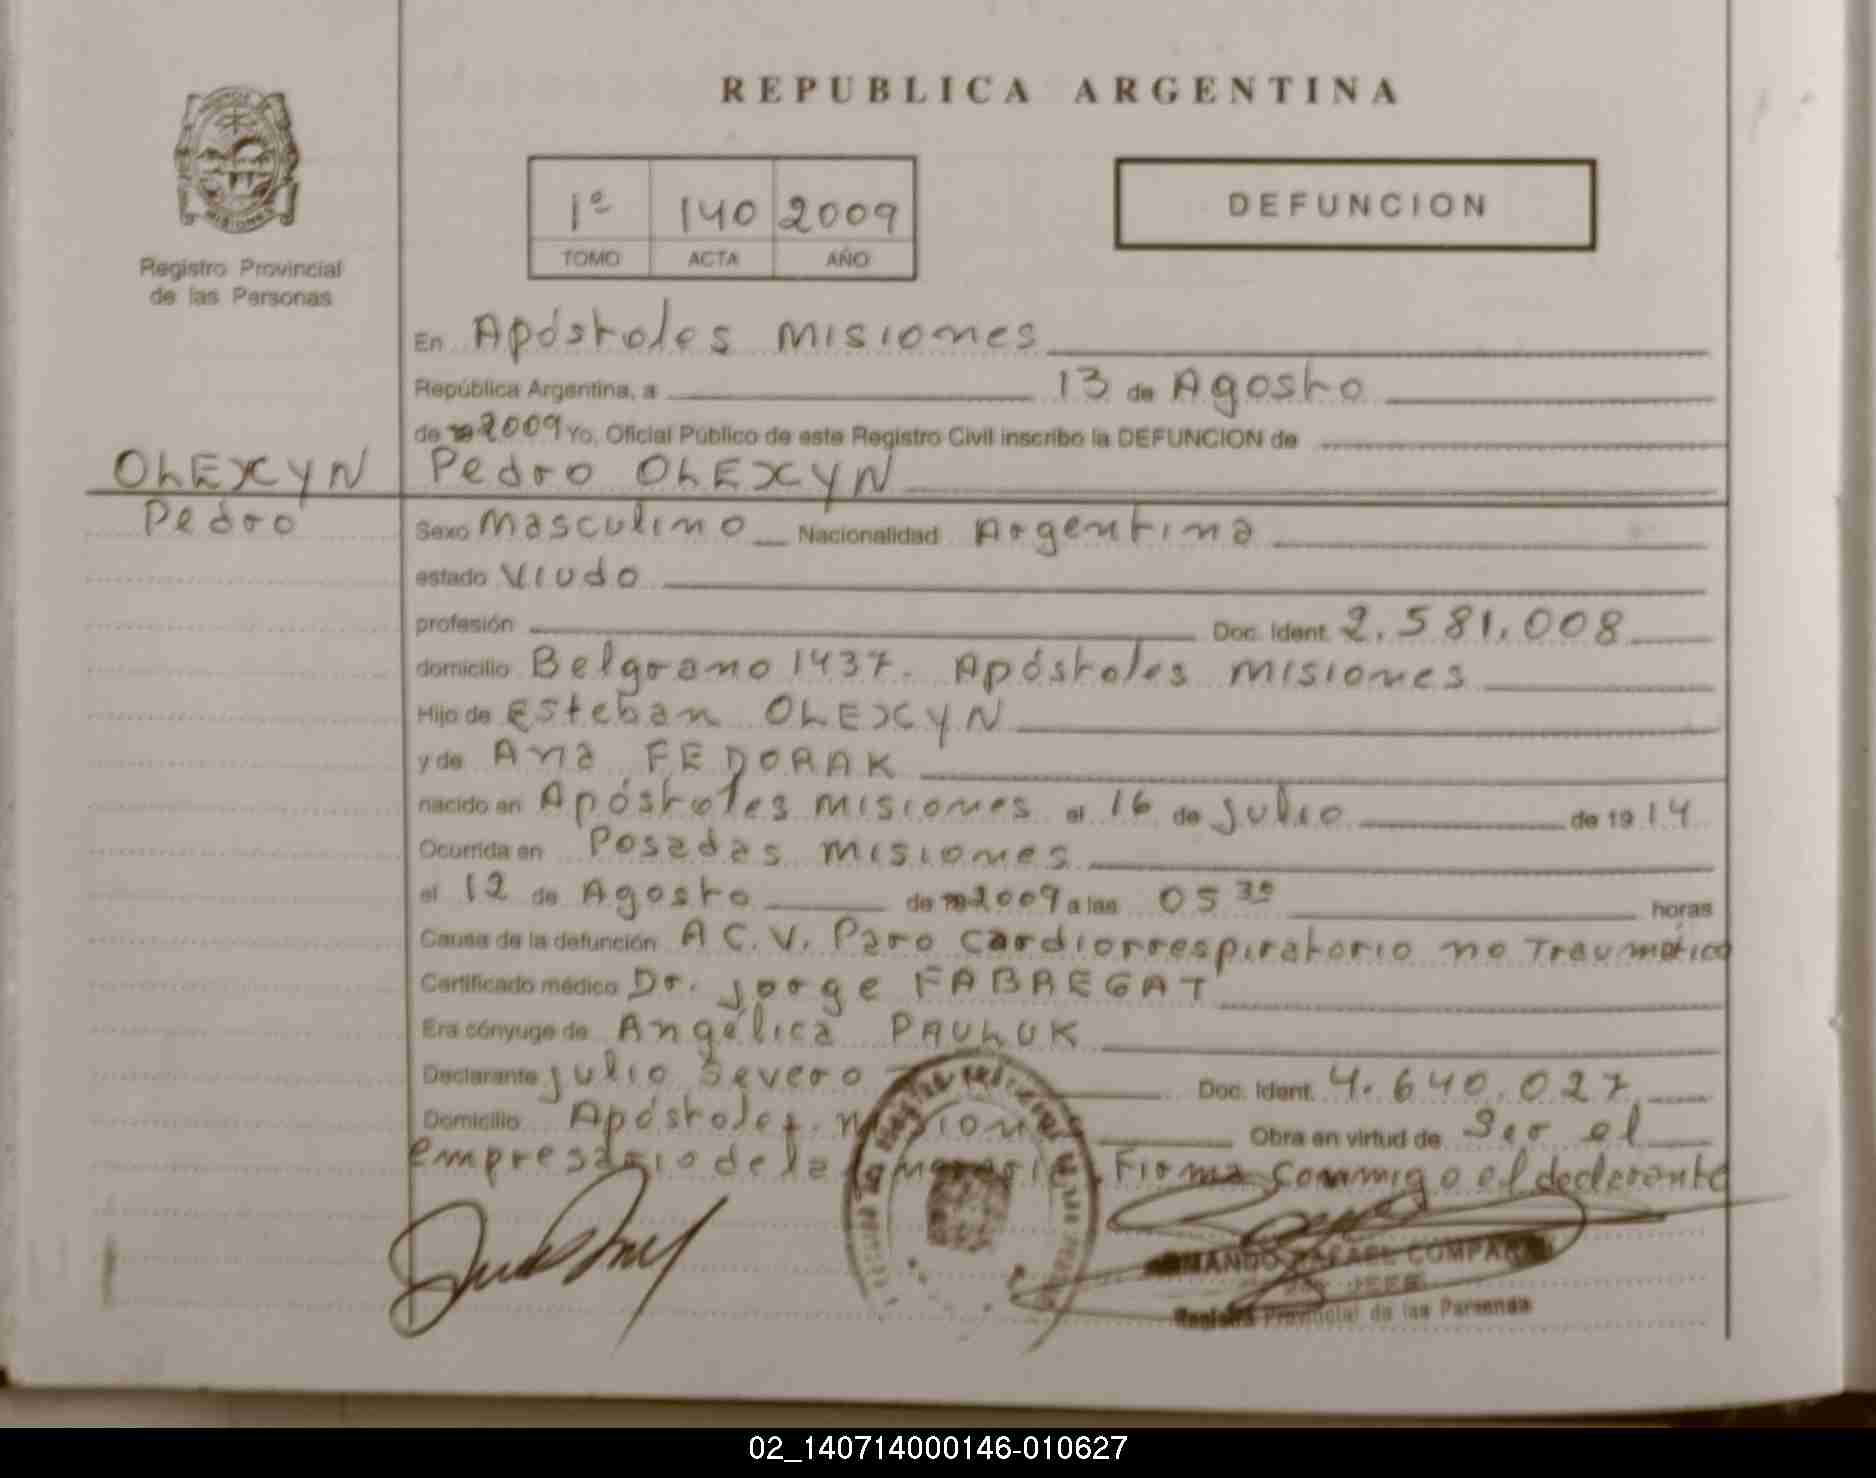 REPUBLICA ARGENTINA
MISIONES
Registro Provincial
de las Personas
1º 140 2009
TOMO ACTA AÑO
DEFUNCION
En Apóstoles Misiones
República Argentina, a 13 de Agosto
de 2009 Yo, Oficial Público de este Registro Civil inscribo la DEFUNCION de
OLEXYN Pedro OLEXYN
Pedro
Sexo Masculino Nacionalidad Argentina
estado Viudo
profesión Doc. Ident. 2.581.008
domicilio Belgrano 1437. Apóstoles Misiones
Hijo de Esteban OLEXYN
y de Ana FEDORAK
nacido en Apóstoles Misiones el 16 de Julio de 1914
Ocurrida en Posadas Misiones
el 12 de Agosto de 2009 a las 05 30 horas
Causa de la defunción A C.V. Paro cardiorrespiratorio no Traumático
Certificado médico Dr. Jorge FABREGAT
Era cónyuge de Angélica PAULUK
Declarante Julio Severo Doc. Ident. 4.640.027
Domicilio Apóstoles. Misiones Obra en virtud de Ser el
empresario de la Firma conmigo el declarante
RAFAEL
JEFE
Registro Provincial de las Personas
02_140714000146-010627